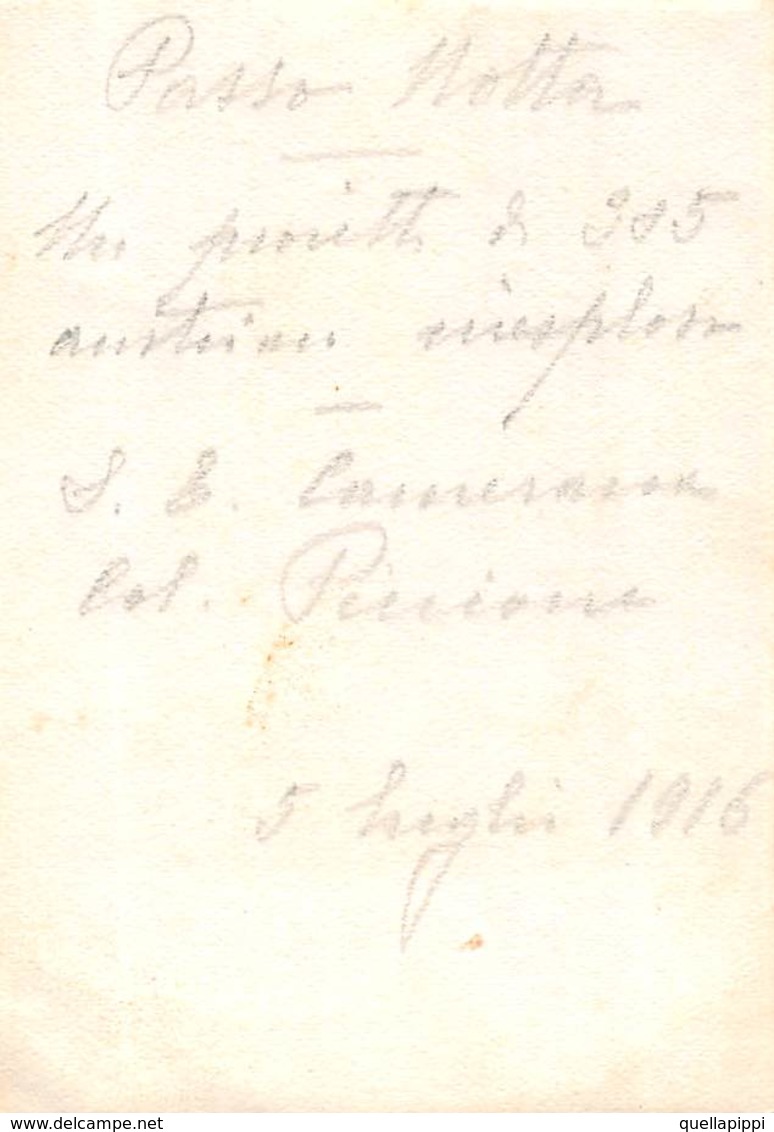 Passo Notta
Un proietto di 305
austriaco inesploso
S. E. Camerana
Col. Piccione
5 luglio 1916
delcampe.net
quellapippi